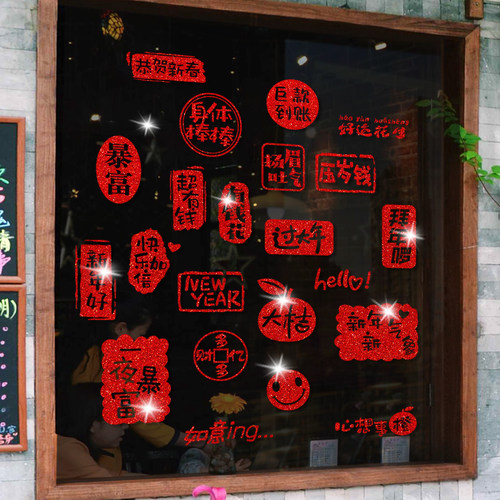 恭贺新春
身体
棒棒
巨款
到账
扬眉
吐气
压岁钱
暴
富
超有钱
有钱花
过大年
拜年啰
新年好
快乐加倍
NEW
YEAR
hello!
大桔
新年气象
新
一夜暴富
多
财亿
多
如意ing...
心想事橙